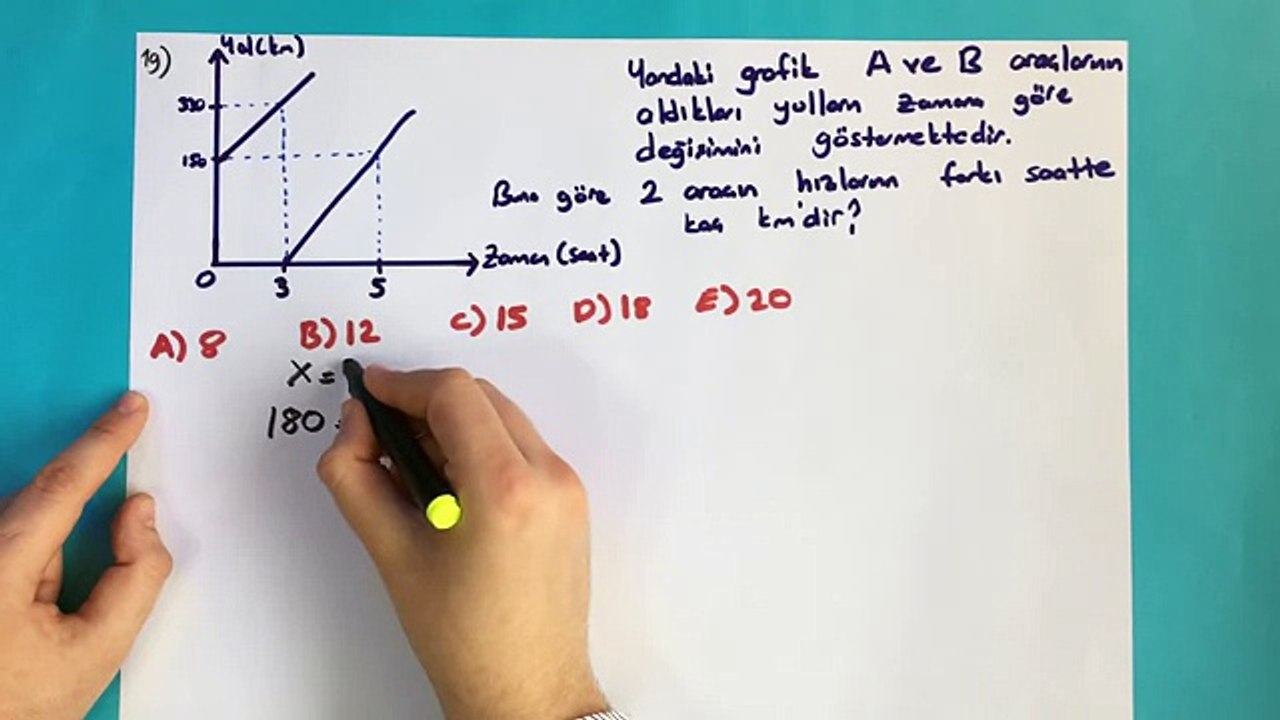 19)
Yol(km)
330
150
0
3
5
Zaman (saat)
Yandaki grafik A ve B araçlarının
aldıkları yolların zamana göre
değişimini göstermektedir.
Buna göre 2 aracın hızlarının farkı saatte
kaç km'dir?
A) 8 B) 12 C) 15 D) 18 E) 20
X =
180